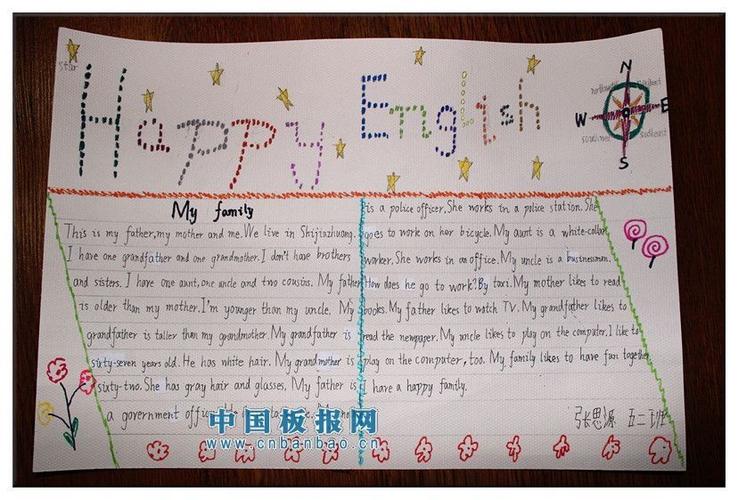 Happy English
star
N
W
E
S
My family
This is my father, my mother and me. We live in Shijiazhuang.
I have one grandfather and one grandmother. I don't have brothers
and sisters. I have one aunt, one uncle and two cousins. My father
is older than my mother. I'm younger than my uncle. My
grandfather is taller than my grandmother. My grandfather is
sixty-seven years old. He has white hair. My grandmother is
sixty-two. She has gray hair and glasses. My father is
a government
is a police officer. She works in a police station. She
goes to work on her bicycle. My aunt is a white-collar
worker. She works in an office. My uncle is a businessman.
How does he go to work? By taxi. My mother likes to read
books. My father likes to watch TV. My grandfather likes to
read the newspaper. My uncle likes to play on the computer. I like to
play on the computer, too. My family likes to have fun together.
I have a happy family.
张思源 五二班
中国板报网
www.cnbanbao.cn